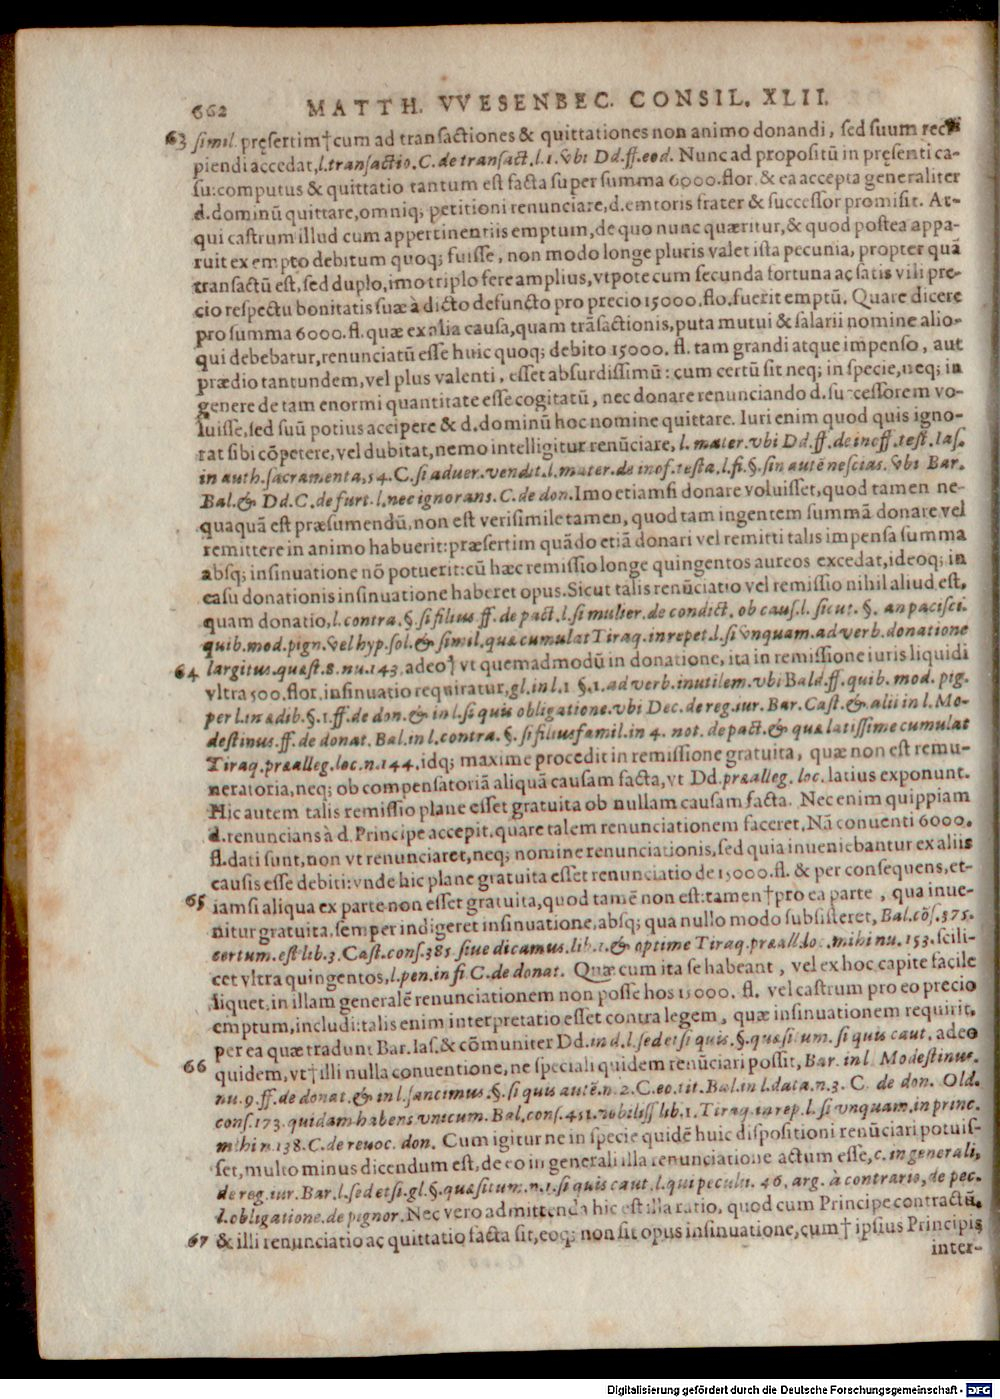 662 MATTH. VVESENBEC. CONSIL. XLII.
63 simil. pręsertim†cum ad transactiones & quittationes non animo donandi, sed suum reci
piendi accedat, l. transactio. C. de transact. l. 1. vbi Dd. ff. eod. Nunc ad propositū in pręsenti ca-
su: computus & quittatio tantum est facta super summa 6000. flor. & ea accepta generaliter
d. dominū quittare, omniq; petitioni renunciare, d. emtoris frater & successor promisit. At-
qui castrum illud cum appertinentiis emptum, de quo nunc quæritur, & quod postea appa-
ruit ex empto debitum quoq; fuisse, non modo longe pluris valet ista pecunia, propter quā
transactū est, sed duplo, imo triplo fere amplius, vtpote cum secunda fortuna ac satis vili pre-
cio respectu bonitatis suæ à dicto defuncto pro precio 15000. flo. fuerit emptū. Quare dicere
pro summa 6000. fl. quæ ex alia causa, quam trāsactionis, puta mutui & salarii nomine alio-
qui debebatur, renunciatū esse huic quoq; debito 15000. fl. tam grandi atque impenso, aut
prædio tantundem, vel plus valenti, esset absurdissimū: cum certū sit neq; in specie, neq; in
genere de tam enormi quantitate esse cogitatū, nec donare renunciando d. successorem vo-
luisse, sed suū potius accipere & d. dominū hoc nomine quittare. Iuri enim quod quis igno-
rat sibi cōpetere, vel dubitat, nemo intelligitur renūciare, l. mater. vbi Dd. ff. de inoff. test. Ias.
in auth. sacramenta, 54. C. si aduer. vendit. l. mater. de inof. testa. l. fi. §. sin autē nescias. vbi Bar.
Bal. & Dd. C. de furt. l. nec ignorans. C. de don. Imo etiamsi donare voluisset, quod tamen ne-
quaquā est præsumendū, non est verisimile tamen, quod tam ingentem summā donare vel
remittere in animo habuerit: præsertim quādo etiā donari vel remitti talis impensa summa
absq; insinuatione nō potuerit: cū hæc remissio longe quingentos aureos excedat, ideoq; in
casu donationis insinuatione haberet opus. Sicut talis renūciatio vel remissio nihil aliud est,
quam donatio, l. contra. §. si filius ff. de pact. l. si mulier. de condict. ob caus. l. sicut. §. an pacisci.
quib. mod. pign. vel hyp. sol. & simil. quæ cumulat Tiraq. in repet. l. si vnquam. ad verb. donatione
64 largitus. quæst. 8. nu. 143. adeo† vt quemadmodū in donatione, ita in remissione iuris liquidi
vltra 500. flor. insinuatio requiratur, gl. in l. 1 §. 1. ad verb. inutilem. vbi Bald. ff. quib. mod. pig.
per l. in ædib. §. 1. ff. de don. & in l. si quis obligatione. vbi Dec. de reg. iur. Bar. Cast. & alii in l. Mo-
destinus. ff. de donat. Bal. in l. contra. §. si filiusfamil. in 4. not. de pact. & quæ latissime cumulat
Tiraq. præalleg. loc. n. 144. idq; maxime procedit in remissione gratuita, quæ non est remu-
neratoria, neq; ob compensatoriā aliquā causam facta, vt Dd. præalleg. loc. latius exponunt.
Hic autem talis remissio plane esset gratuita ob nullam causam facta. Nec enim quippiam
d. renuncians à d. Principe accepit, quare talem renunciationem faceret. Nā conuenti 6000.
fl. dati sunt, non vt renunciaret, neq; nomine renunciationis, sed quia inueniebantur ex aliis
causis esse debiti: vnde hic plane gratuita esset renunciatio de 15000. fl. & per consequens, et-
65 iamsi aliqua ex parte non esset gratuita, quod tamē non est: tamen†pro ea parte, qua inue-
nitur gratuita, semper indigeret insinuatione, absq; qua nullo modo subsisteret, Bal. cōs. 375.
certum. est lib. 3. Cast. cons. 385. siue dicamus. lib. 1. & optime Tiraq. præall. loc. mihi nu. 153. scili-
cet vltra quingentos, l. pen. in fi C. de donat. Quæ cum ita se habeant, vel ex hoc capite facile
liquet, in illam generalē renunciationem non posse hos 15000. fl. vel castrum pro eo precio
emptum, includi: talis enim interpretatio esset contra legem, quæ insinuationem requirit,
per ea quæ tradunt Bar. Ias. & cōmuniter Dd. in d. l. sed etsi quis. §. quæsitum. si quis caut. adeo
66 quidem, vt†illi nulla conuentione, ne speciali quidem renūciari possit, Bar. in l. Modestinus.
nu. 9. ff. de donat. & in l. sancimus. §. si quis autē. n. 2. C. eo. tit. Bal. in l. data. n. 3. C. de don. Old.
cons. 173. quidam habens vnicum. Bal. cons. 451. nobiliss lib. 1. Tiraq. in rep. l. si vnquam. in princ.
mihi n. 138. C. de reuoc. don. Cum igitur ne in specie quidē huic dispositioni renūciari potuis-
set, multo minus dicendum est, de eo in generali illa renunciatione actum esse, c. in generali,
de reg. iur. Bar. l. sed etsi. gl. §. quæsitum. n. 1. si quis caut. l. qui peculii. 46. arg. à contrario, de pec.
l. obligatione. de pignor. Nec vero admittenda hic est illa ratio, quod cum Principe contractū,
67 & illi renunciatio ac quittatio facta sit, eoq; non sit opus insinuatione, cum† ipsius Principis
inter-
Digitalisierung gefördert durch die Deutsche Forschungsgemeinschaft - DFG